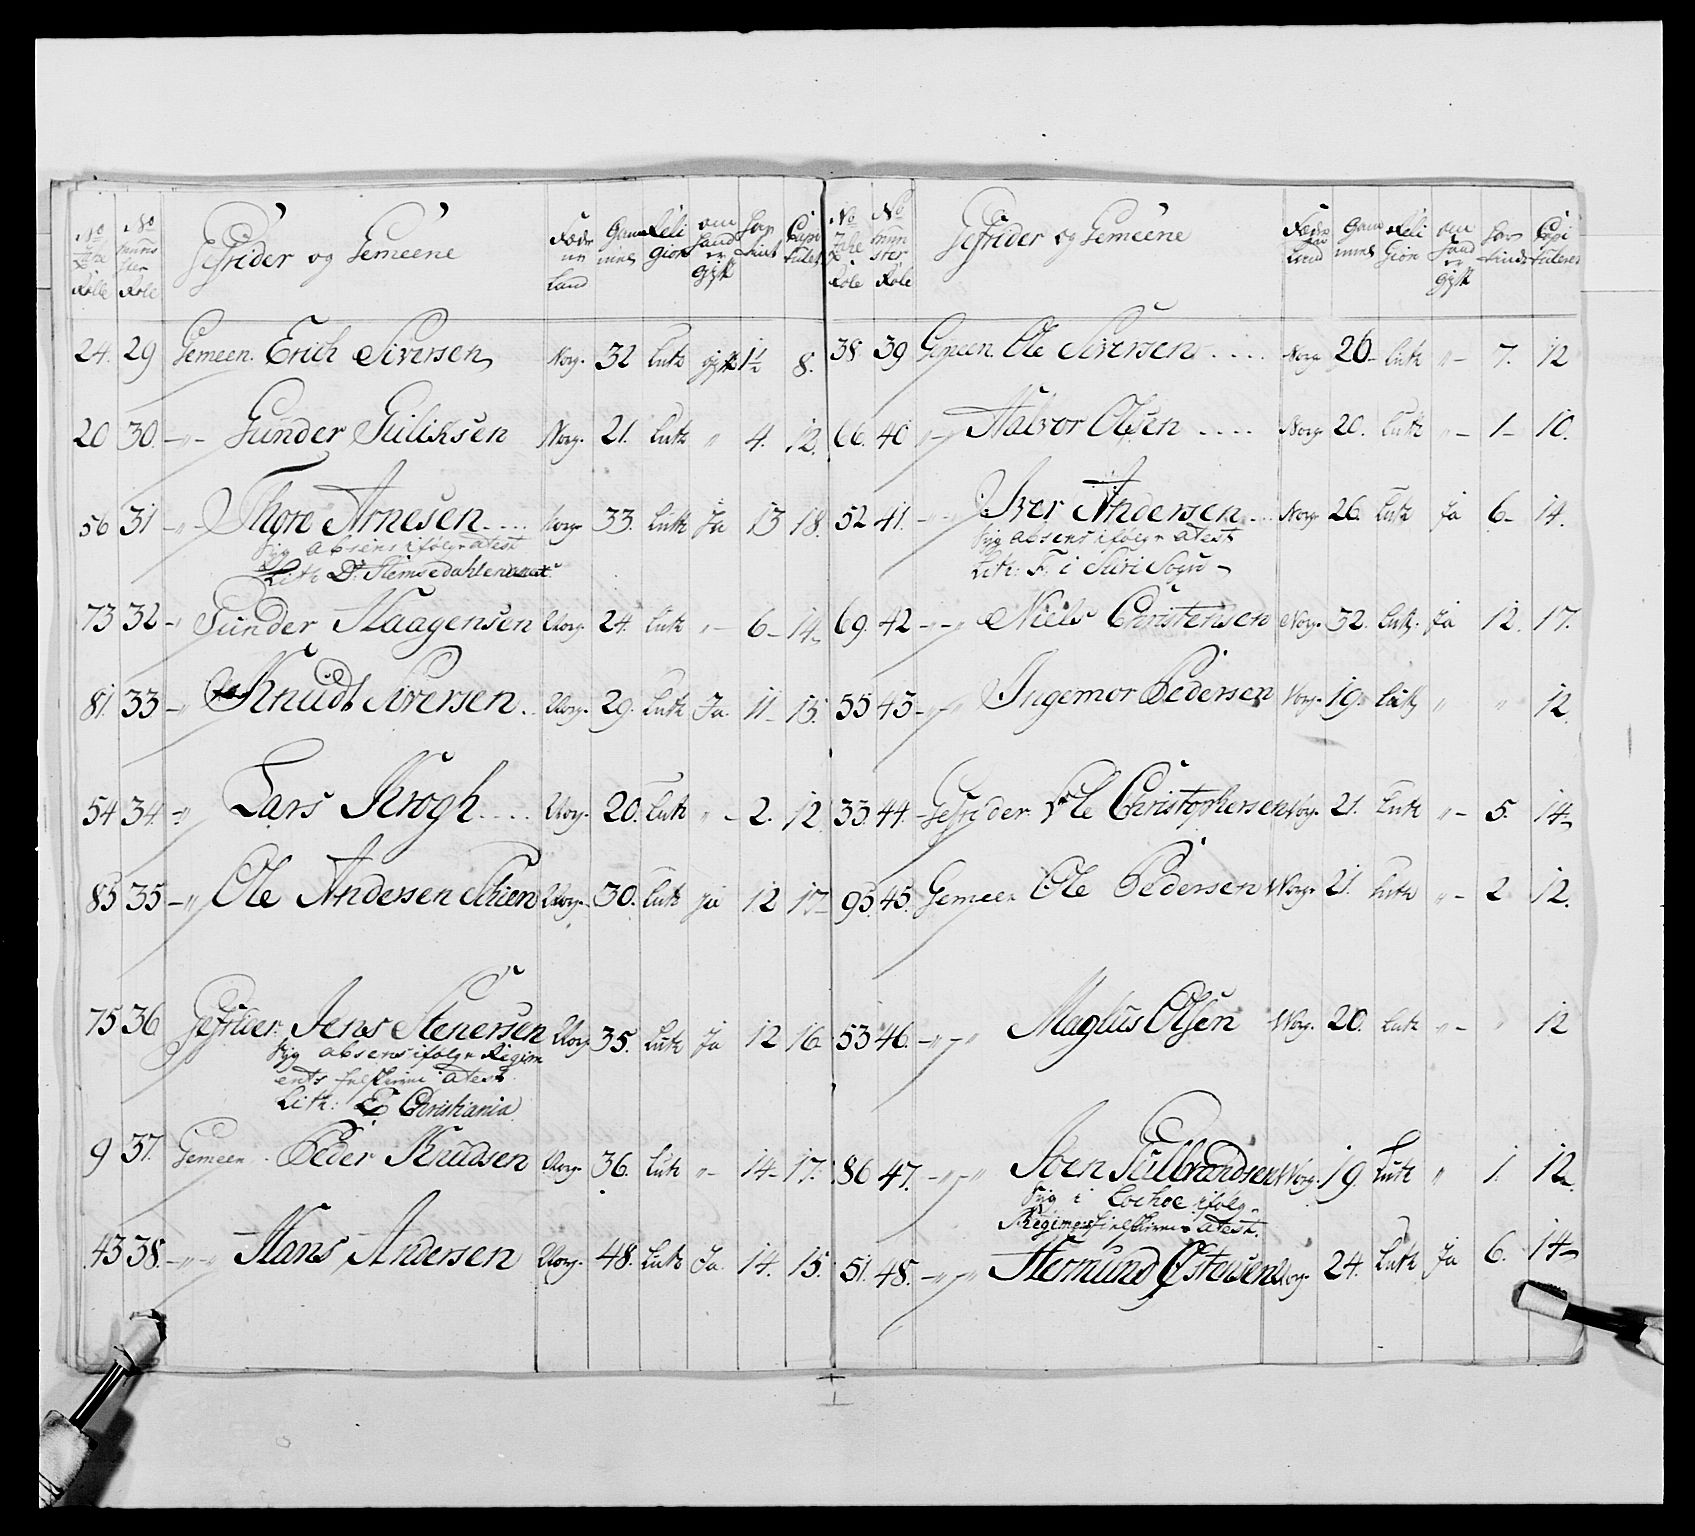 No No Gefrider og Gemeene Fæde Gam Reli om har Capi
Rolle Role Land mel Gion hand er gift tient tulert
24. 29 Gemeen. Erich Siversen Norg. 32 Luth gift 1½ 8.
20 30. -"- Gunder Guliksen Norg. 21. Luth " 4. 12.
56 31 -"- Thore Arnesen.... Norg. 33. Luth Ja 13 18.
Syg absens ifølge atest
Lith D: Hemsedahlen
73 32 -" Gunder Haagensen Norg. 24. Luth "- 6- 14-
81. 33 -" Knudt Siversen.. Norg. 29. Luth Ja. 11- 15.
54 34. -" Lars Krogh..... Norg. 20. Luth "- 2. 12.
85 35 -" Ole Andersen Schien Norg. 30. Luth ja 12 17-
75 36 Gefrider. Jens Stenersen Norg 35. Luth Ja 12 16
Syg absens ifølge Regim
ents atest
Lith: E Christiania
9 37. Gemeen. Peder Knudsen Norg. 36. Luth "- 14- 17.
43 38. -"-"- Hans Andersen Norg. 48. Luth Ja. 14. 15.
No No Gefrider og Gemeene Fæde Gam Reli om har Capi
Role Role Land mel Gion hand er gift tient tuleret
38 39 Gemeen. Ole Siversen..... Norg 26- Luth "- 7. 12
66. 40 "- Halvor Olsen..... Norg 20. Luth "- 1- 10.
52 41. -"-" Iver Andersen... Norg 26. Luth Ja 6- 14.
Syg absens ifølge atest
Lith: F: i Sogn-
69. 42 -"-" Niels Christensen Norg. 32. Luth. Ja 12. 17.
55 43 -"-" Ingemor Pedersen Norg. 19. Luth " " 12.
33. 44. Gefrider Ole Christophersen Norg. 21. Luth "- 5. 14-
95. 45. Gemeen Ole Pedersen Norg. 21. Luth "- 2 12.
53 46. -"-" Maglus Olsen Norg. 20. Luth "- " 12
86 47. -"-" Iven Gulbrandsen Norg. 19. Luth " 1. 12.
Syg i ifølge
Regimentsfeltskierers atest.
51. 48. -"-" Hermund Østensen Norg. 24. Luth Ja 6. 14-